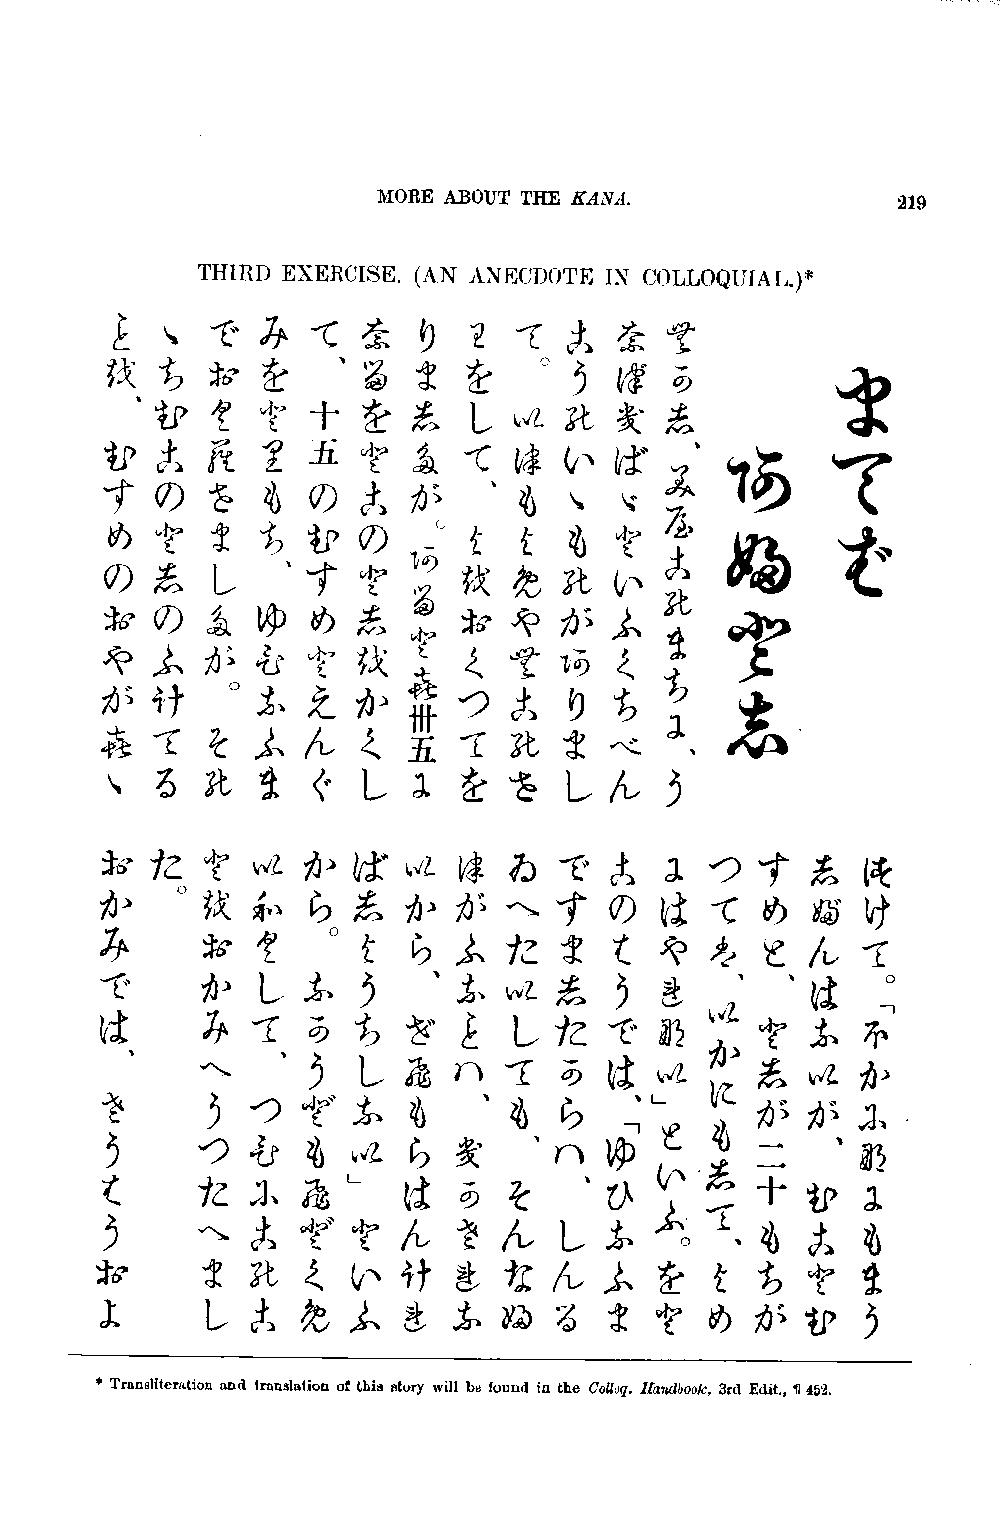 MORE ABOUT THE KANA. 219
THIRD EXERCISE. (AN ANECDOTE IN COLLOQUIAL.)*
まてば
あふとし
むかし、みやこのまちに、う
なづきばゞといふくちべん
こうのいゝものがありまし
て。いつもよめやむこのせ
わをして、よをおくつてを
りましたが。あるとき卅五に
なるをとこのとしをかくし
て、十五のむすめとえんぐ
みをとりもち、ゆひなふま
でおくらせましたが。その
ゝちむこのとしのふけてる
ことを、むすめのおやがきゝ
つけて。「ほかになにもまう
しぶんはないが、むことむ
すめと、としが二十もちが
つては、いかにもして、よめ
にはやれない」といふ。をと
このはうでは、「ゆひなふま
ですましたからハ、しんる
ゐへたいしても、そんなふ
つがふなことハ、きかされな
いから、ぜひもらはんけれ
ばしようちしない」といふ
から。なかうどもひどくめ
いわくして、つひにこのこ
とをおかみへうつたへまし
た。
おかみでは、さうはうおよ
* Transliteration and translation of this story will be found in the Colloq. Handbook, 3rd Edit., ¶ 452.